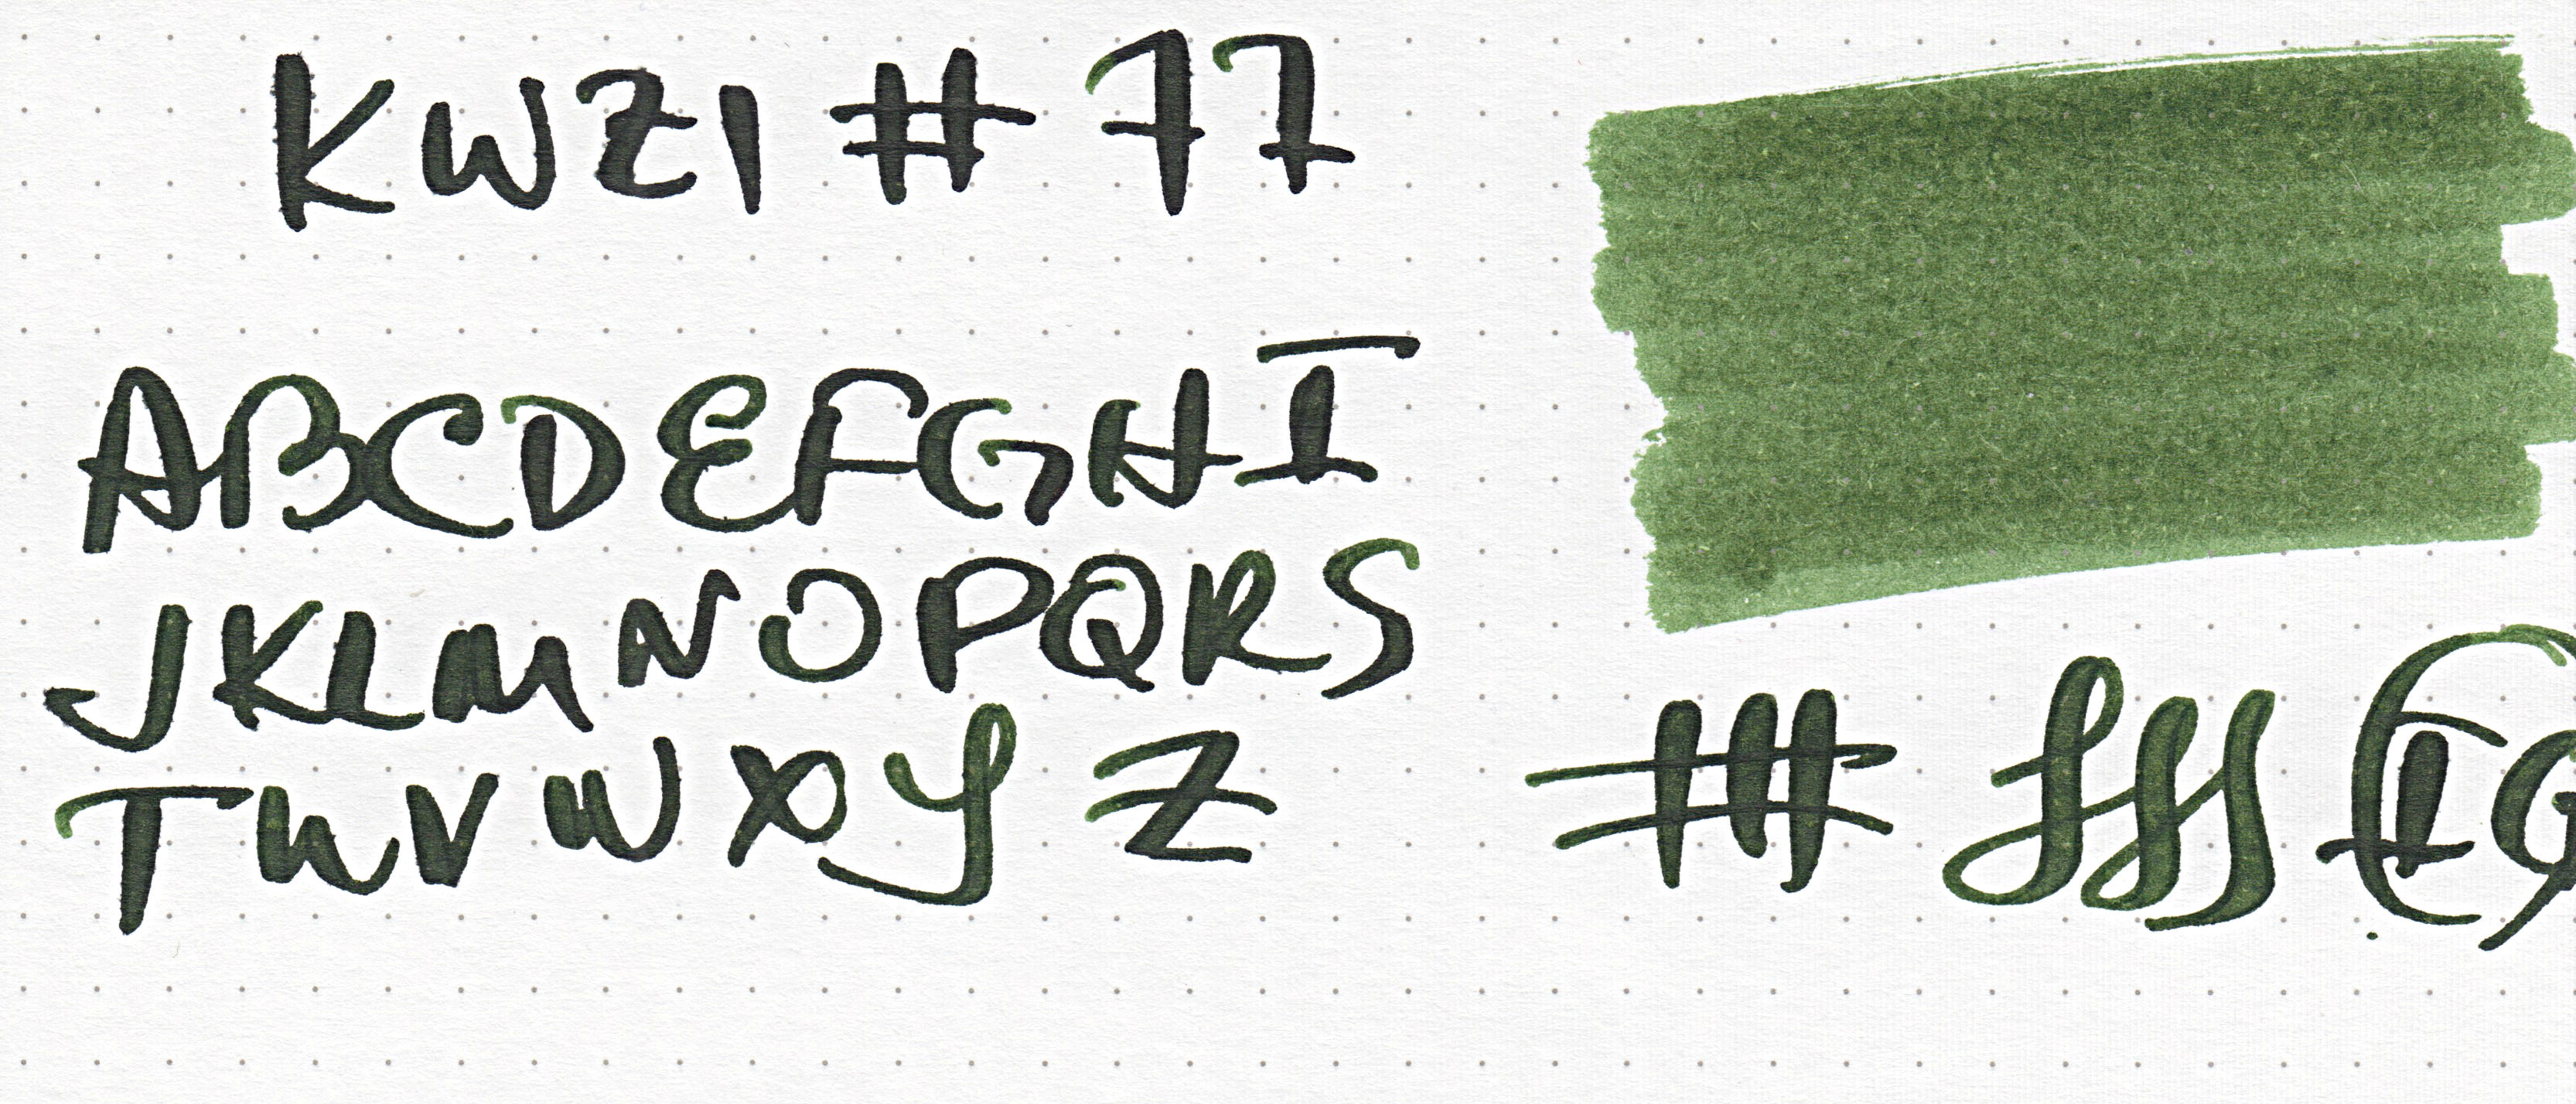 KWZI # 77
ABCDEFGHI
JKLMNOPQRS
TUVWXYZ